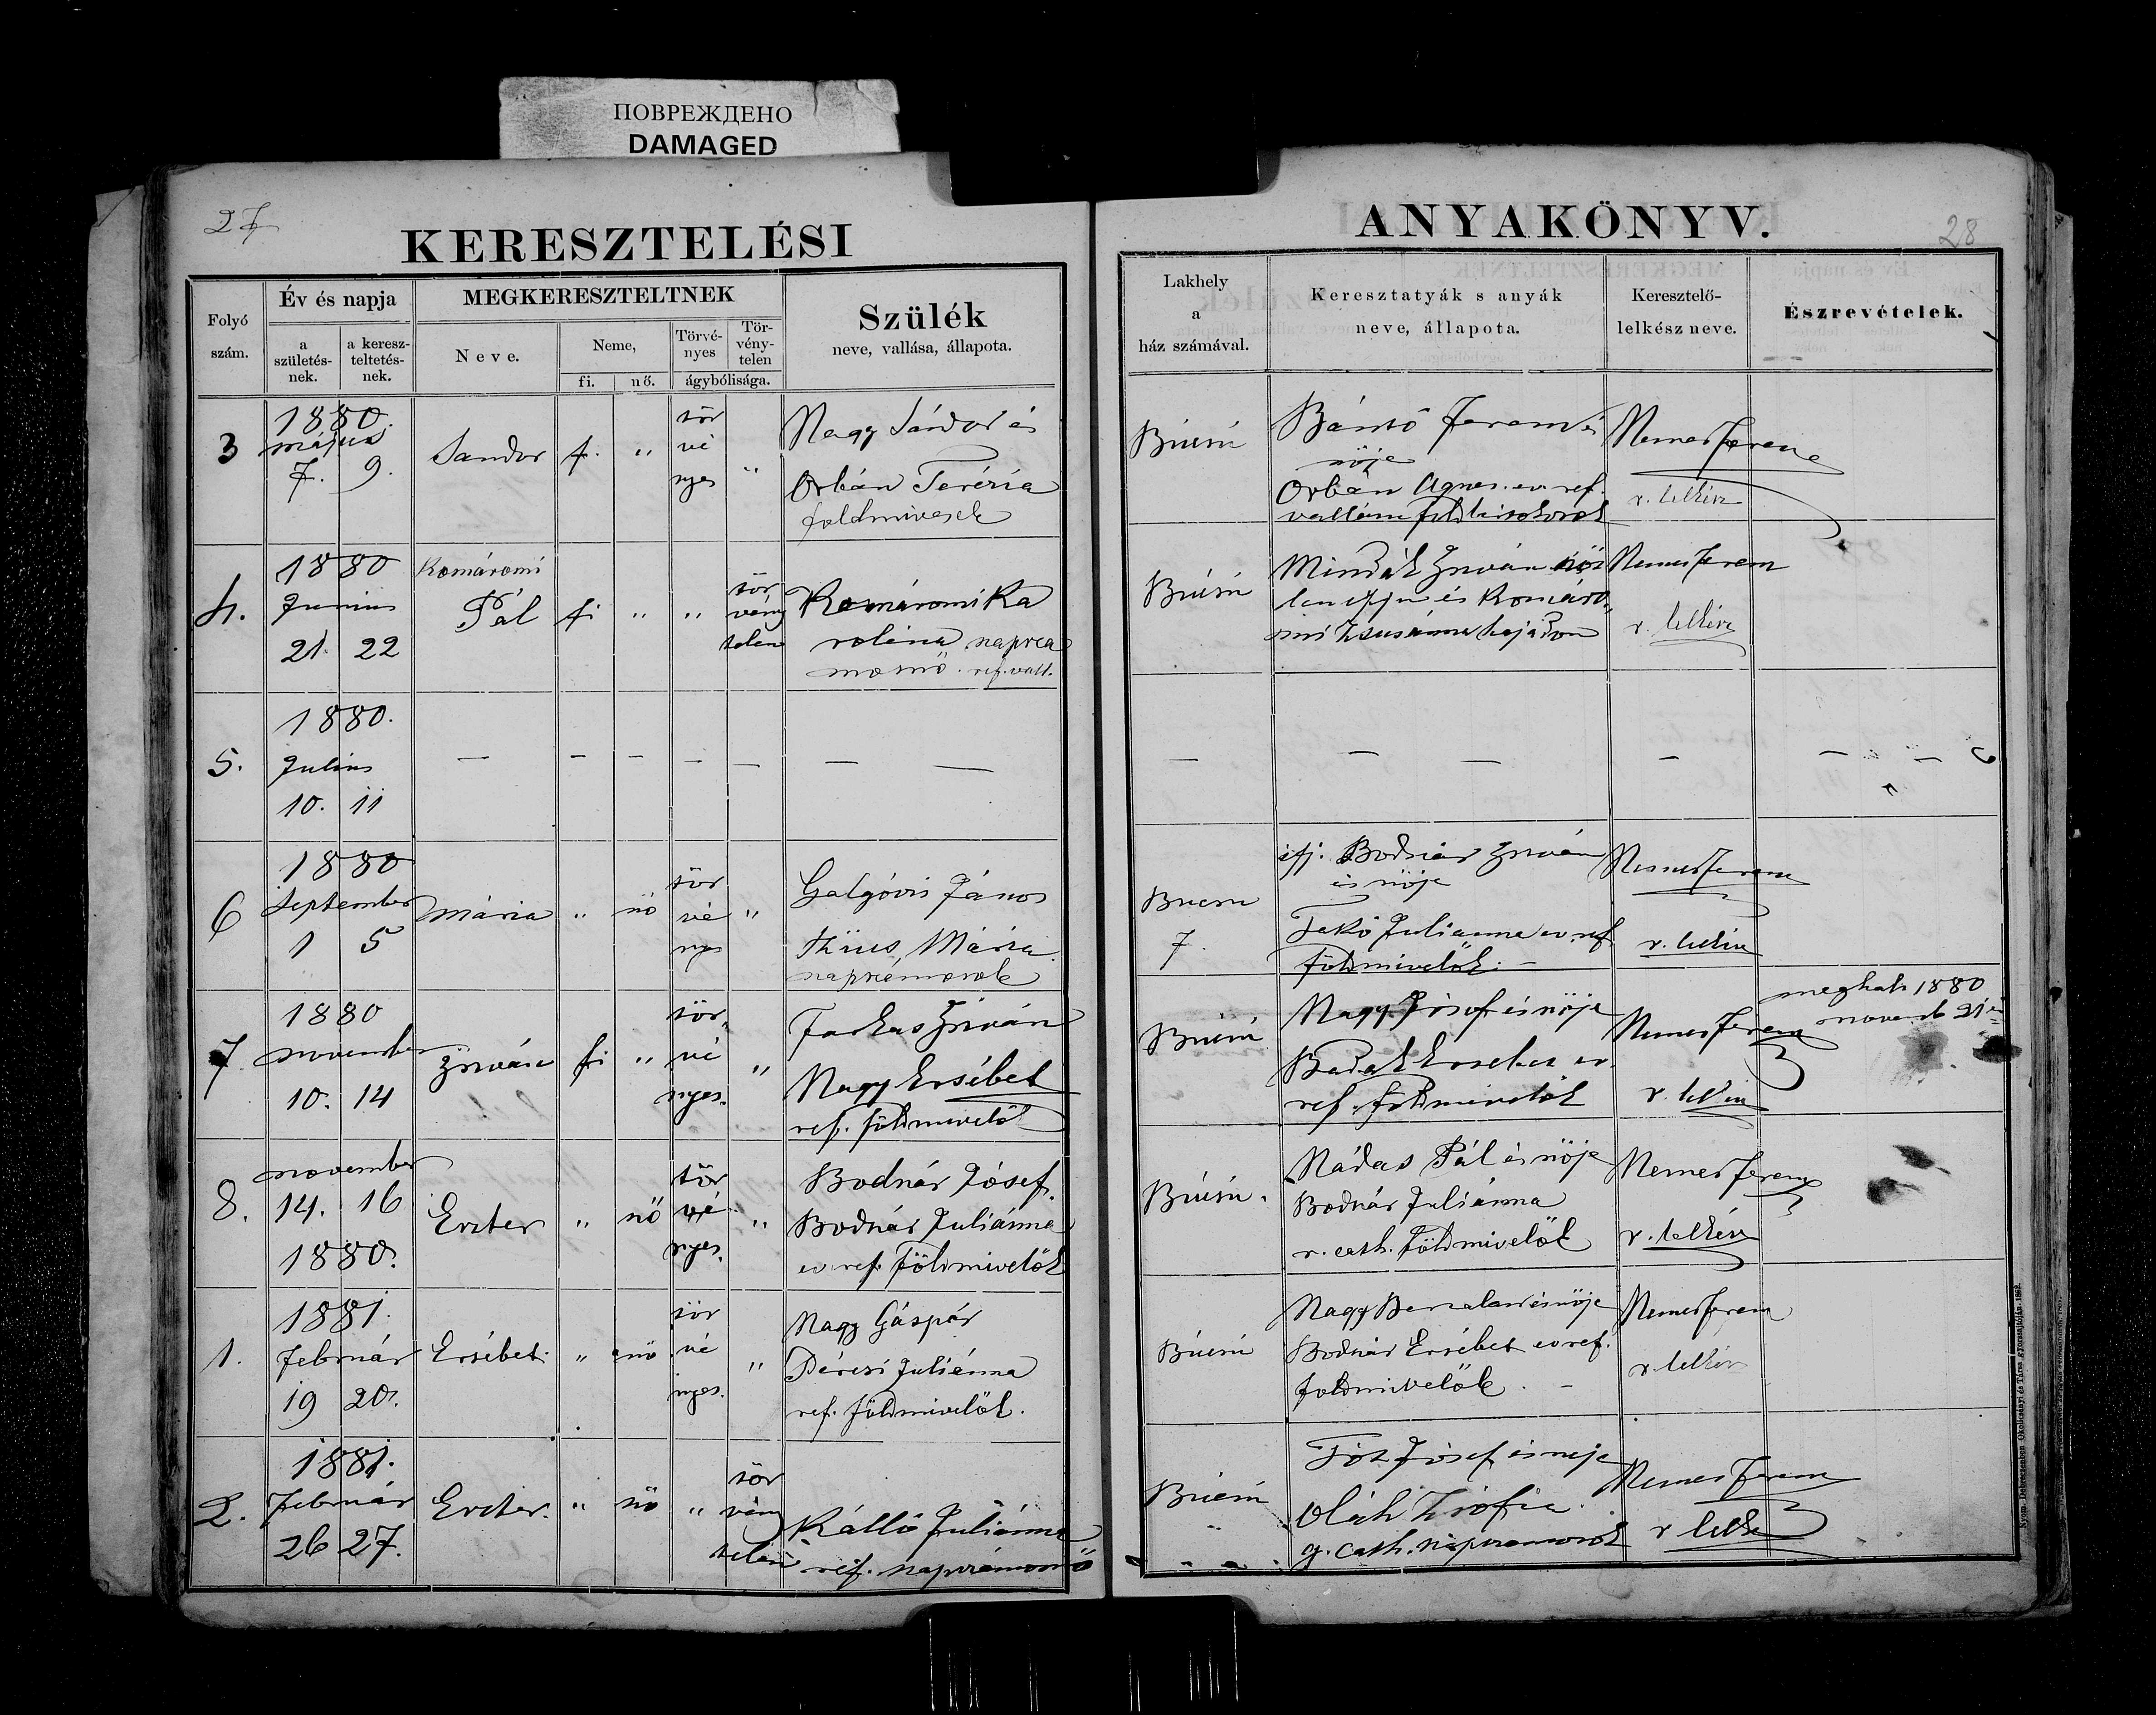 ПОВРЕЖДЕНО
DAMAGED
27
KERESZTELÉSI
Folyó szám.
Év és napja
a születés-nek.
a keresz-teltetés-nek.
MEGKERESZTELTNEK
Neve.
Neme,
fi.
nő.
Törvé-nyes
Tör-vény-telen
ágybólisága.
Szülék
neve, vallása, állapota.
3
1880.
május
7. 9.
Sandor
f.
"
tör
vé
nyes
"
Nagy Sándor és
Orbán Terézia
földmivesek
4.
1880
Junius
21. 22
Komáromi
Pál
fi
"
"
tör
vény
telen
Komáromi Ka
rolina napszá
mosnő. ref. vall.
5.
1880.
Julius
10. 11
— — — — — — —
6
1880
September
1 5
Mária
"
nő
tör
vé
nyes
"
Galgóvis János
Mária
napszámosok
7.
1880
november
10. 14
István
fi
"
tör
vé
nyes.
"
Farkas István
Nagy Ersébet
ref. földmivelő
8.
november
14. 16
1880.
Eszter
"
nő
tör
vé
nyes.
"
Bodnár Jósef.
Bodnár Juliánna
ev ref. földmivelők
1.
1881.
Február
19 20.
Ersébet.
"
nő
tör
vé
nyes.
"
Nagy Gáspár
Juliánna
ref. földmivelők.
2.
1881.
Február
26 27.
Eszter.
"
nő
"
tör
vény
telen
Kálló Juliánna
ref. napszámosnő
28
ANYAKÖNYV.
Lakhely
a
ház számával.
Keresztatyák s anyák
neve, állapota.
Keresztelő-
lelkész neve.
Észrevételek.
Búcsú
Bántó Ferencz és
nője
Orbán Agnes. ev ref.
vallásu földbirtokosok
Nemes Ferencz
r. lelkész
Búcsú
István
és Komáro
mi Zsusánna hajadon
Nemes Ferencz
r. lelkész
— — — — — —
Bucsu
7.
ifj. Bodnár István
és nője
Julianna ev. ref
földmivelők. —
Nemes Ferencz
r. lelkész
Búcsú
Nagy Jósef és nője
Ersebet ev.
ref. földmivelők
Nemes Ferencz
r. lelkész
meghalt 1880
novemb 21én
Búcsú.
Nádas Pál és nője
Bodnár Juliánna
r. cath. földmivelők
Nemes Ferencz
r. lelkész
Búcsú
Nagy és nője
Bodnár Ersébet ev ref.
földmivelők. —
Nemes Ferencz
r. lelkész
Búcsú
Tót Jósef és neje
Oláh Zsófia.
g. cath. napszamosok
Nemes Ferencz
r lelkész